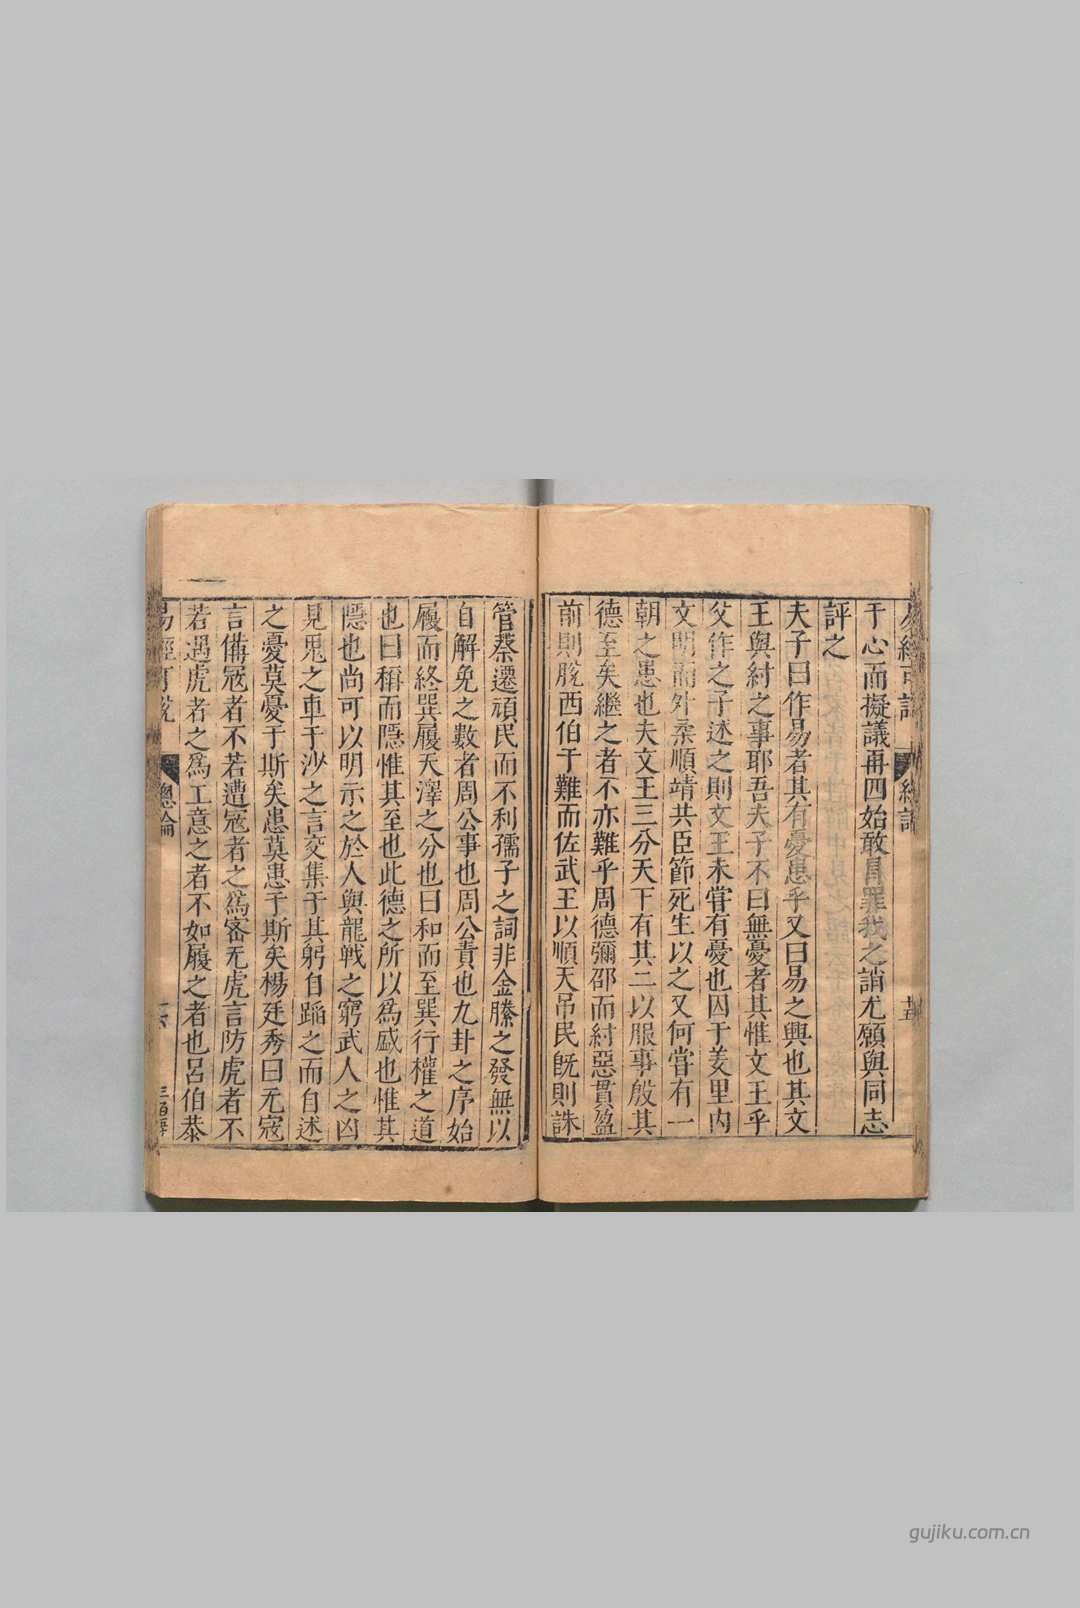 于心而擬議再四始敢冒罪我之誚尤願與同志
評之
夫子曰作易者其有憂患乎又曰易之興也其文
王與紂之事耶吾夫子不曰無憂者其惟文王乎
父作之子述之則文王未甞有憂也囚于羑里内
文明而外柔順靖共臣節死生以之又何甞有一
朝之患也夫文王三分天下有其二以服事殷其
德至矣繼之者不亦難乎周德彌邵而紂惡貫盈
前則脫西伯于難而佐武王以順天吊民旣則誅
管蔡遷頑民而不利孺子之詞非金縢之發無以
自解免之數者周公事也周公責也九卦之序始
履而終巽履天澤之分也曰和而至巽行權之道
也曰稱而隱惟其至也此德之所以爲盛也惟其
隱也尚可以明示之於人與龍戰之窮武人之凶
見鬼之車于沙之言交集于其躬自蹈之而自述
之憂莫憂于斯矣患莫患于斯矣楊廷秀曰无寇
言備寇者不若遭寇者之爲審无虎言防虎者不
若遇虎者之爲工意之者不如履之者也呂伯恭
易經可說
總論
gujiku.com.cn